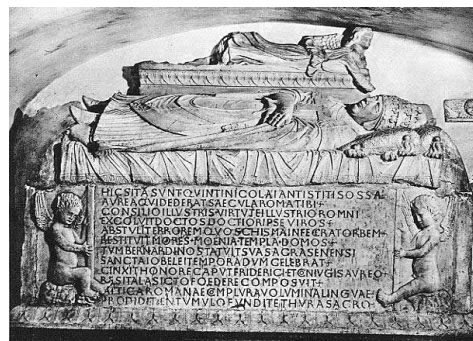 HIC SITA SUNT QUINTI NICOLAI ANTISTITIS OSSA
AUREA QUI DEDERAT SAECULA ROMA TIBI
CONSILIO ILLUSTRIS VIRTUTE ILLUSTRIOR OMNI
EXCOLUIT DOCTOS DOCTIOR IPSE VIROS
ABSTULIT ERROREM QUO SCHISMA INFECERAT ORBEM
RESTITUIT MORES MOENIA TEMPLA DOMOS
TUM BERNARDINO STATUIT SUA SACRA SENENSI
SANCTA IOBELEI TEMPORA DUM CELEBRAT
CINXIT HONORE CAPUT FRIDERICI ET CONIUGIS AUREO
RES ITALAS ICTO FOEDERE COMPOSUIT
ATTICA ROMANAE COMPLURA VOLUMINA LINGUAE
PRODIDIT EN TUMULO FUNDITE THURA SACRO